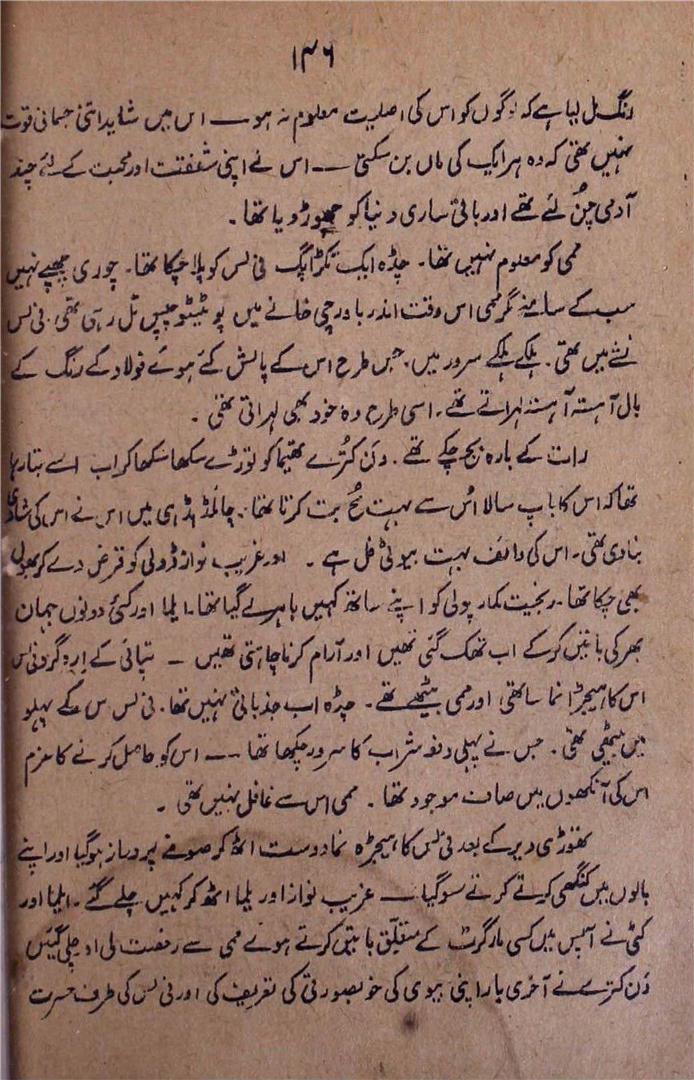 ۱۴۶
رنگ مل لیا ہے کہ لوگوں کو اس کی اصلیت معلوم نہ ہو ـــ اس میں شاید اتنی جسمانی قوت
نہیں تھی کہ وہ ہر ایک کی ماں بن سکتی ـــ اس نے اپنی شفقت اور محبت کے لئے چند
آدمی چُن لئے تھے اور باقی ساری دنیا کو چھوڑ دیا تھا۔
ممی کو معلوم نہیں تھا۔ چڈہ ایک تکڑا پگ فی لس کو پلا چکا تھا۔ چوری چھپے نہیں
سب کے سامنے مگر ممی اس وقت اندر باورچی خانے میں پوٹیٹو چپس تل رہی تھی۔ فی لس
نشے میں تھی۔ ہلکے ہلکے سرور میں۔ جس طرح اس کے پالش کئے ہوئے فولاد کے رنگ کے
بال آہستہ آہستہ لہراتے تھے۔ اسی طرح وہ خود بھی لہراتی تھی ۔
رات کے بارہ بج چکے تھے ۔ ون کُترے تھیما کو توڑے سکھا سکھا کر اب اسے بتا رہا
تھا کہ اس کا باپ سالا اُس سے بہت مُحبت کرتا تھا۔ چائلڈ ہڈ ہی میں اس نے اس کی شادی
بنادی تھی۔ اس کی وائف بہت بیوٹی فل ہے ۔ اور غریب نواز ڈولی کو قرض دے کر بھول
بھی چکا تھا۔ رنجیت کمار پولی کو اپنے ساتھ کہیں باہر لے گیا تھا۔ ایلما اور کٹی دونوں جہان
بھر کی باتیں کرکے اب تھک گئی تھیں اور آرام کرنا چاہتی تھیں ـــ تپائی کے اردگرد فی لس
اس کا ہیجڑا نما ساتھی اور ممی بیٹھے تھے۔ چڈہ اب جذباتی نہیں تھا۔ فی لس اس کے پہلو
میں بیٹھی تھی۔ جس نے پہلی دفعہ شراب کا سرور چکھا تھا ـــ اس کو حاصل کرنے کا عزم
اس کی آنکھوں میں صاف موجود تھا ۔ ممی اس سے غافل نہیں تھی ۔
تھوڑی دیر کے بعد فی لس کا ہیجڑہ نما دوست اٹھ کر صوفے پر دراز ہوگیا اور اپنے
بالوں میں کنگھی کرتے کرتے سوگیا ـــ غریب نواز اور یلما اٹھ کر کہیں چلے گئے۔ ایلما اور
کٹی نے آپس میں کسی مارگرٹ کے متعلق باتیں کرتے ہوئے ممی سے رخصت لی اور چلی گئیں
وَن کترے نے آخری بار اپنی بیوی کی خوبصورتی کی تعریف کی اور فی لس کی طرف حسرت